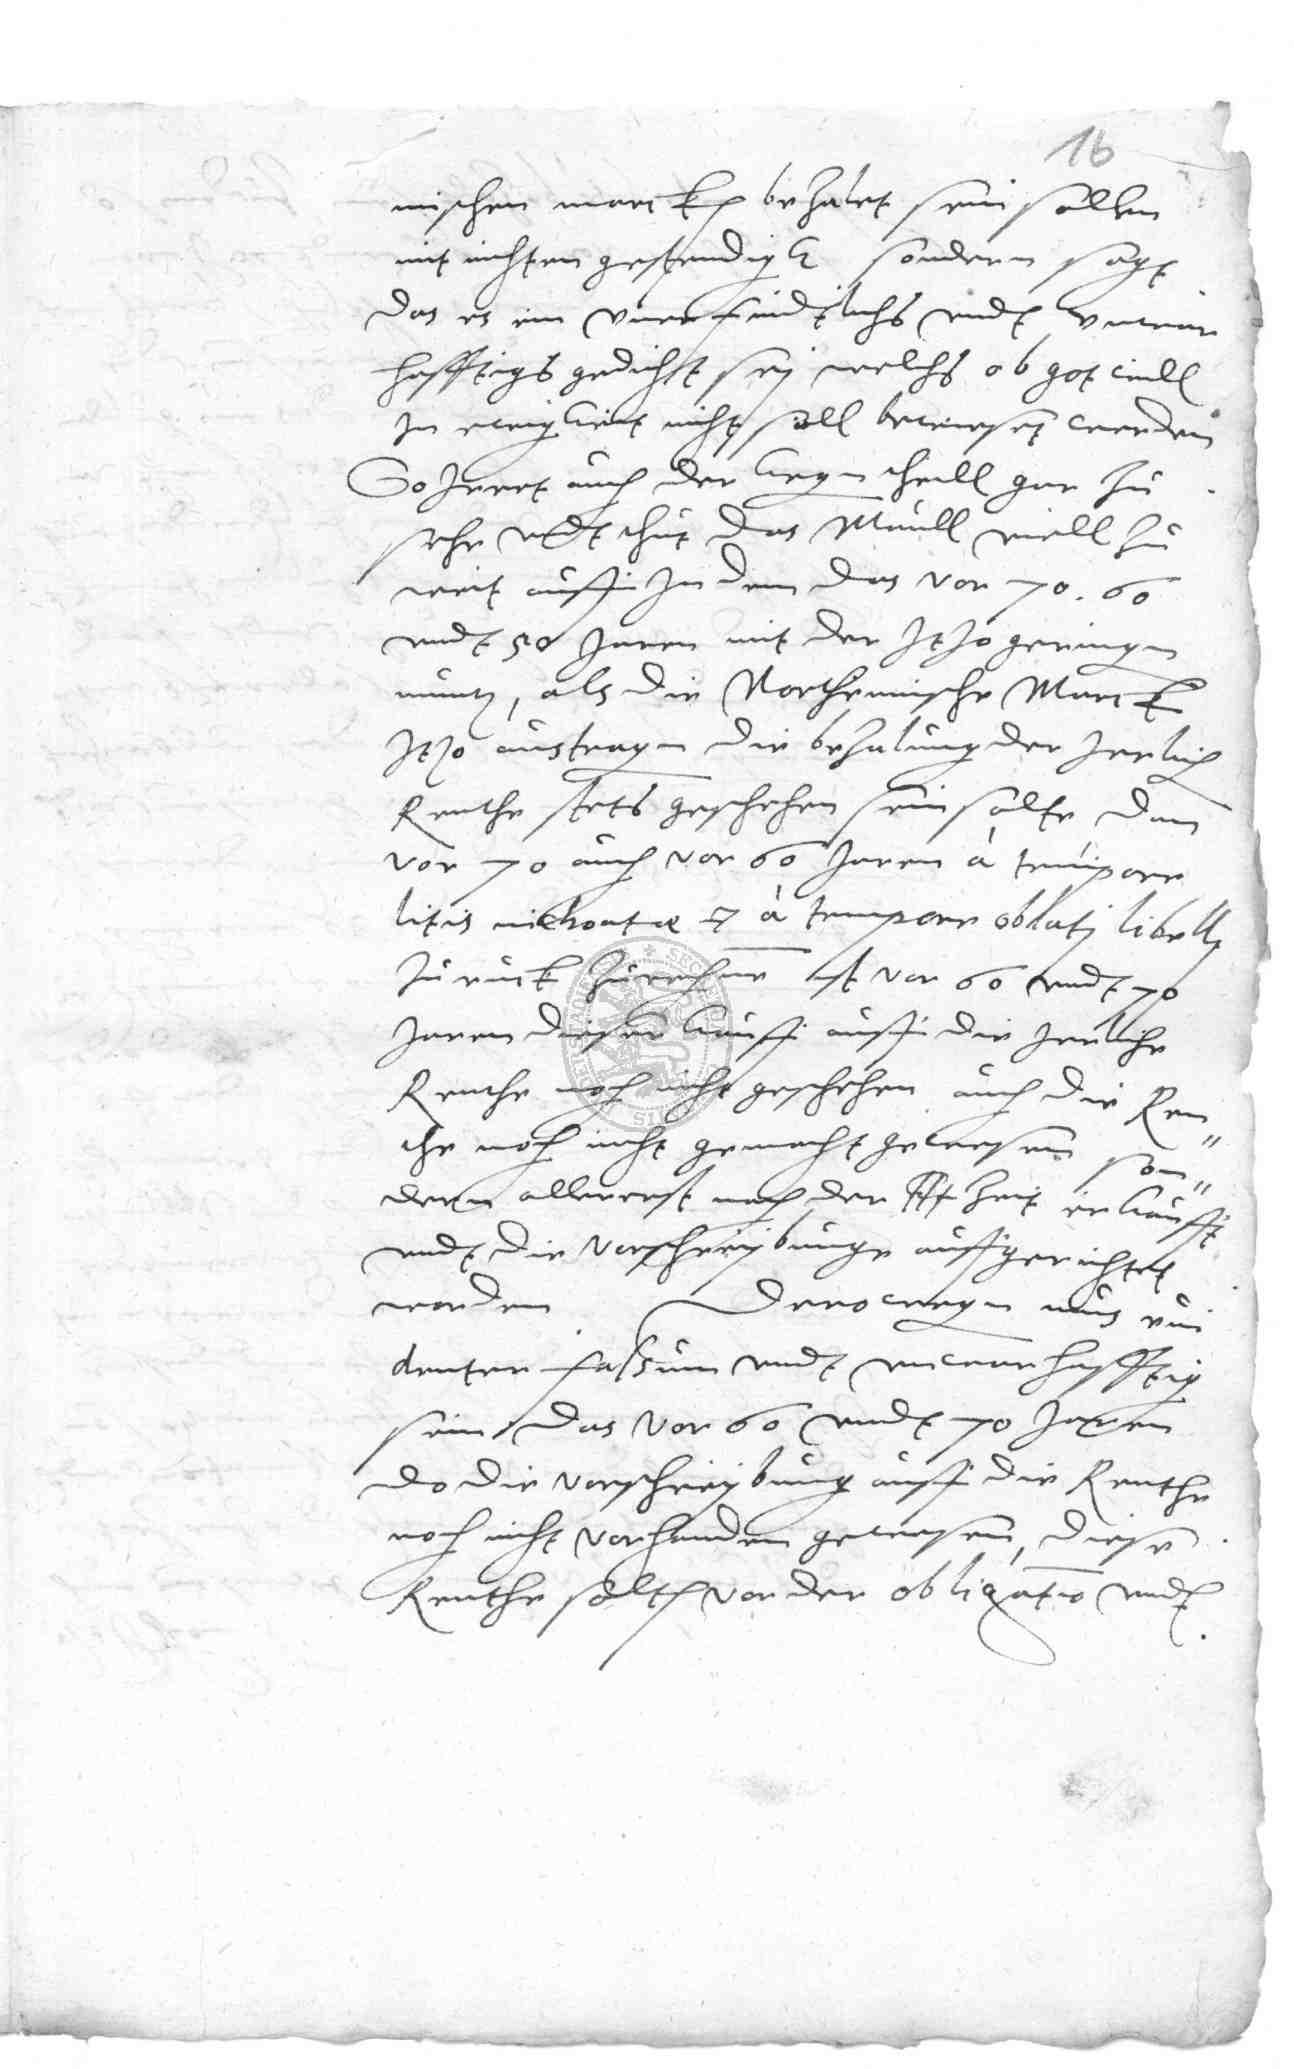 16
mischen marck bezalet sein sollen
mit nichten gestendigk sondern sagt
das es ein vnerfindtlichs vndt vnwar
hafftigs gedicht sey welchs ob got will
In ewigkeit nicht soll beweiset werden
So Irret auch der kegentheill gar zu
sehr vndt thut das Maull viell zu
weit auff In dem das vor 70. 60
vndt 50 Jaren mit der Itzo geringen
muntz, als die Northemische Marck
Itzo austragen die bezalung der Jerlich
Renthe stets geschehen sein solte dan
vor 70 auch vor 60 Jaren à tempore
litis inchoatae à tempore oblati libelli
zuruck zurechnen ist vor 60 vndt 70
Jaren dieser kauff auff die Jerliche
Renthe noch nicht geschehen auch die Ren"
the noch nicht gemacht gewesen son"
dern allererst nach der Zeit erkaufft
vndt die vorschreybunge auffgerichtet
worden Derowegen mus eui
denter falsum vndt vnwarhafftig
sein das vor 60 vndt 70 Jaren
do die vorschreybung auff die Renthe
noch nicht vorhanden gewesen, diese
Renthe solt vor der obligatio vndt